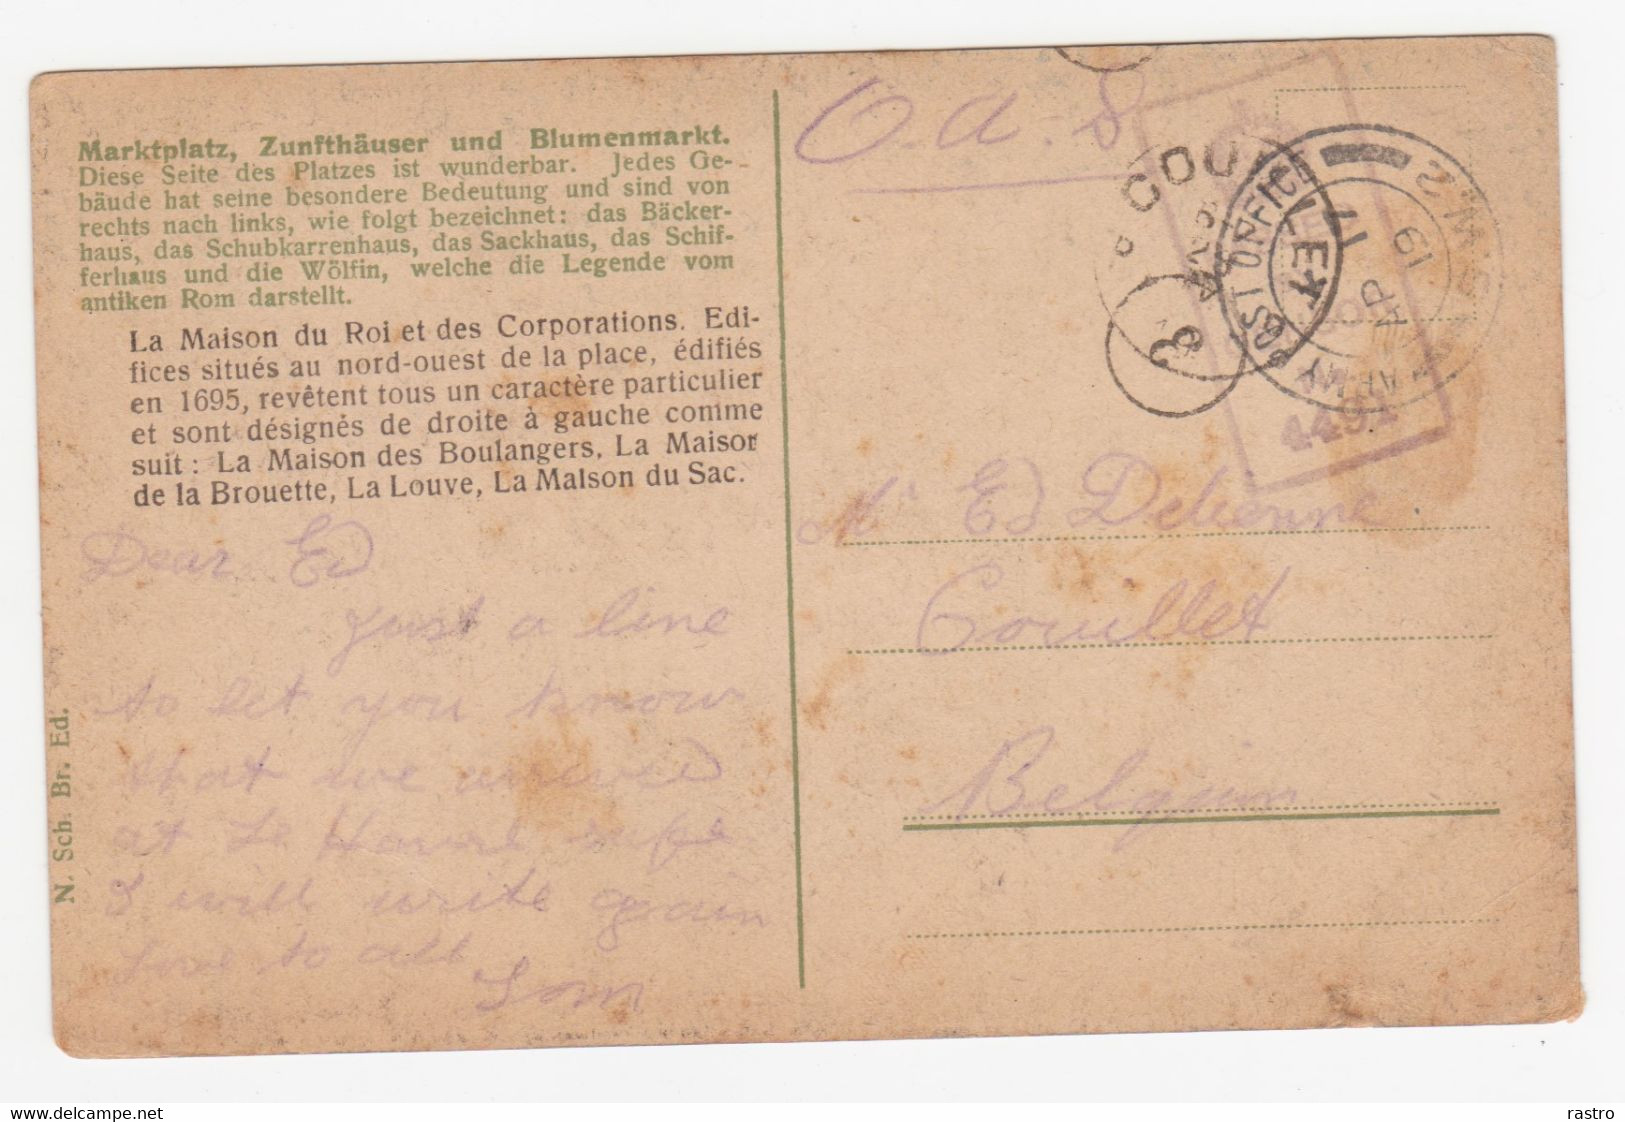 Marktplatz, Zunfthäuser und Blumenmarkt.
Diese Seite des Platzes ist wunderbar. Jedes Ge-
bäude hat seine besondere Bedeutung und sind von
rechts nach links, wie folgt bezeichnet: das Bäcker-
haus, das Schubkarrenhaus, das Sackhaus, das Schif-
ferhaus und die Wölfin, welche die Legende vom
antiken Rom darstellt.
La Maison du Roi et des Corporations. Edi-
fices situés au nord-ouest de la place, édifiés
en 1695, revêtent tous un caractère particulier
et sont désignés de droite à gauche comme
suit : La Maison des Boulangers, La Maison
de la Brouette, La Louve, La Maison du Sac.
Dear Ed
just a line
to let you know
that we arrived
at Le Havre safe
I will write again
love to all
Tom
N. Sch. Br. Ed.
O.a.S
COUILLET
3
ARMY POST OFFICE
S.W.S
17 AP 19
4491
Mr Ed Delienne
Couillet
Belgium
delcampe.net
rastro